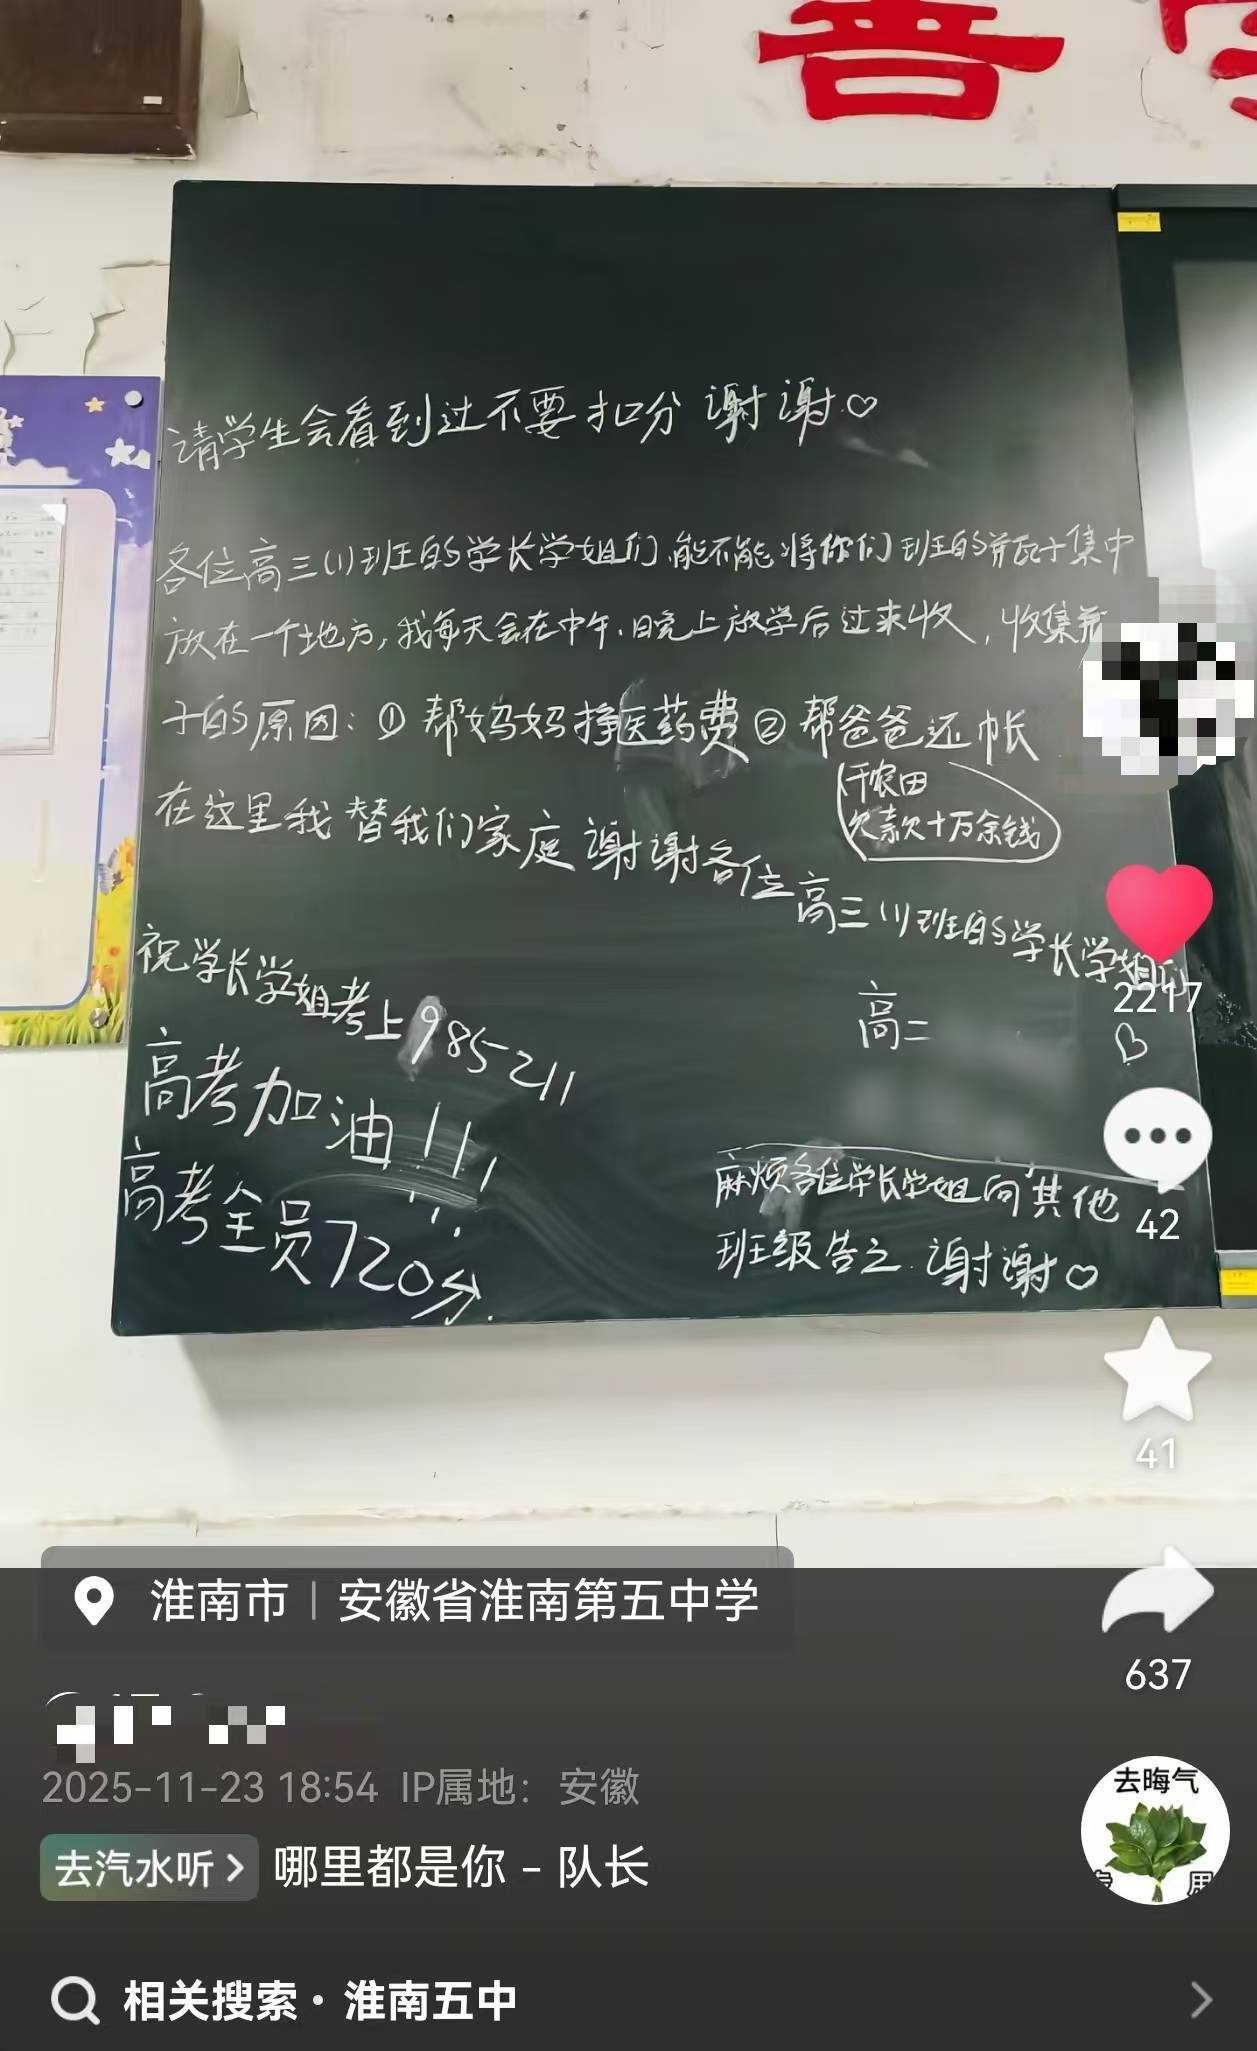 请学生会看到过不要扣分 谢谢♡
各位高三(1)班的学长学姐们,能不能将你们班的瓶子集中
放在一个地方,我每天会在中午、晚上放学后过来收,收集瓶
子的原因:① 帮妈妈挣医药费② 帮爸爸还帐
干农田
欠款十万余钱
在这里我替我们家庭谢谢各位高三(1)班的学长学姐们
高二
♡
祝学长学姐考上985 211
高考加油!!!
高考全员720分.
麻烦各位学长学姐向其他
班级告之.谢谢♡
2217
42
41
637
淮南市 | 安徽省淮南第五中学
2025-11-23 18:54 IP属地:安徽
去汽水听 > 哪里都是你 - 队长
去晦气
相关搜索·淮南五中